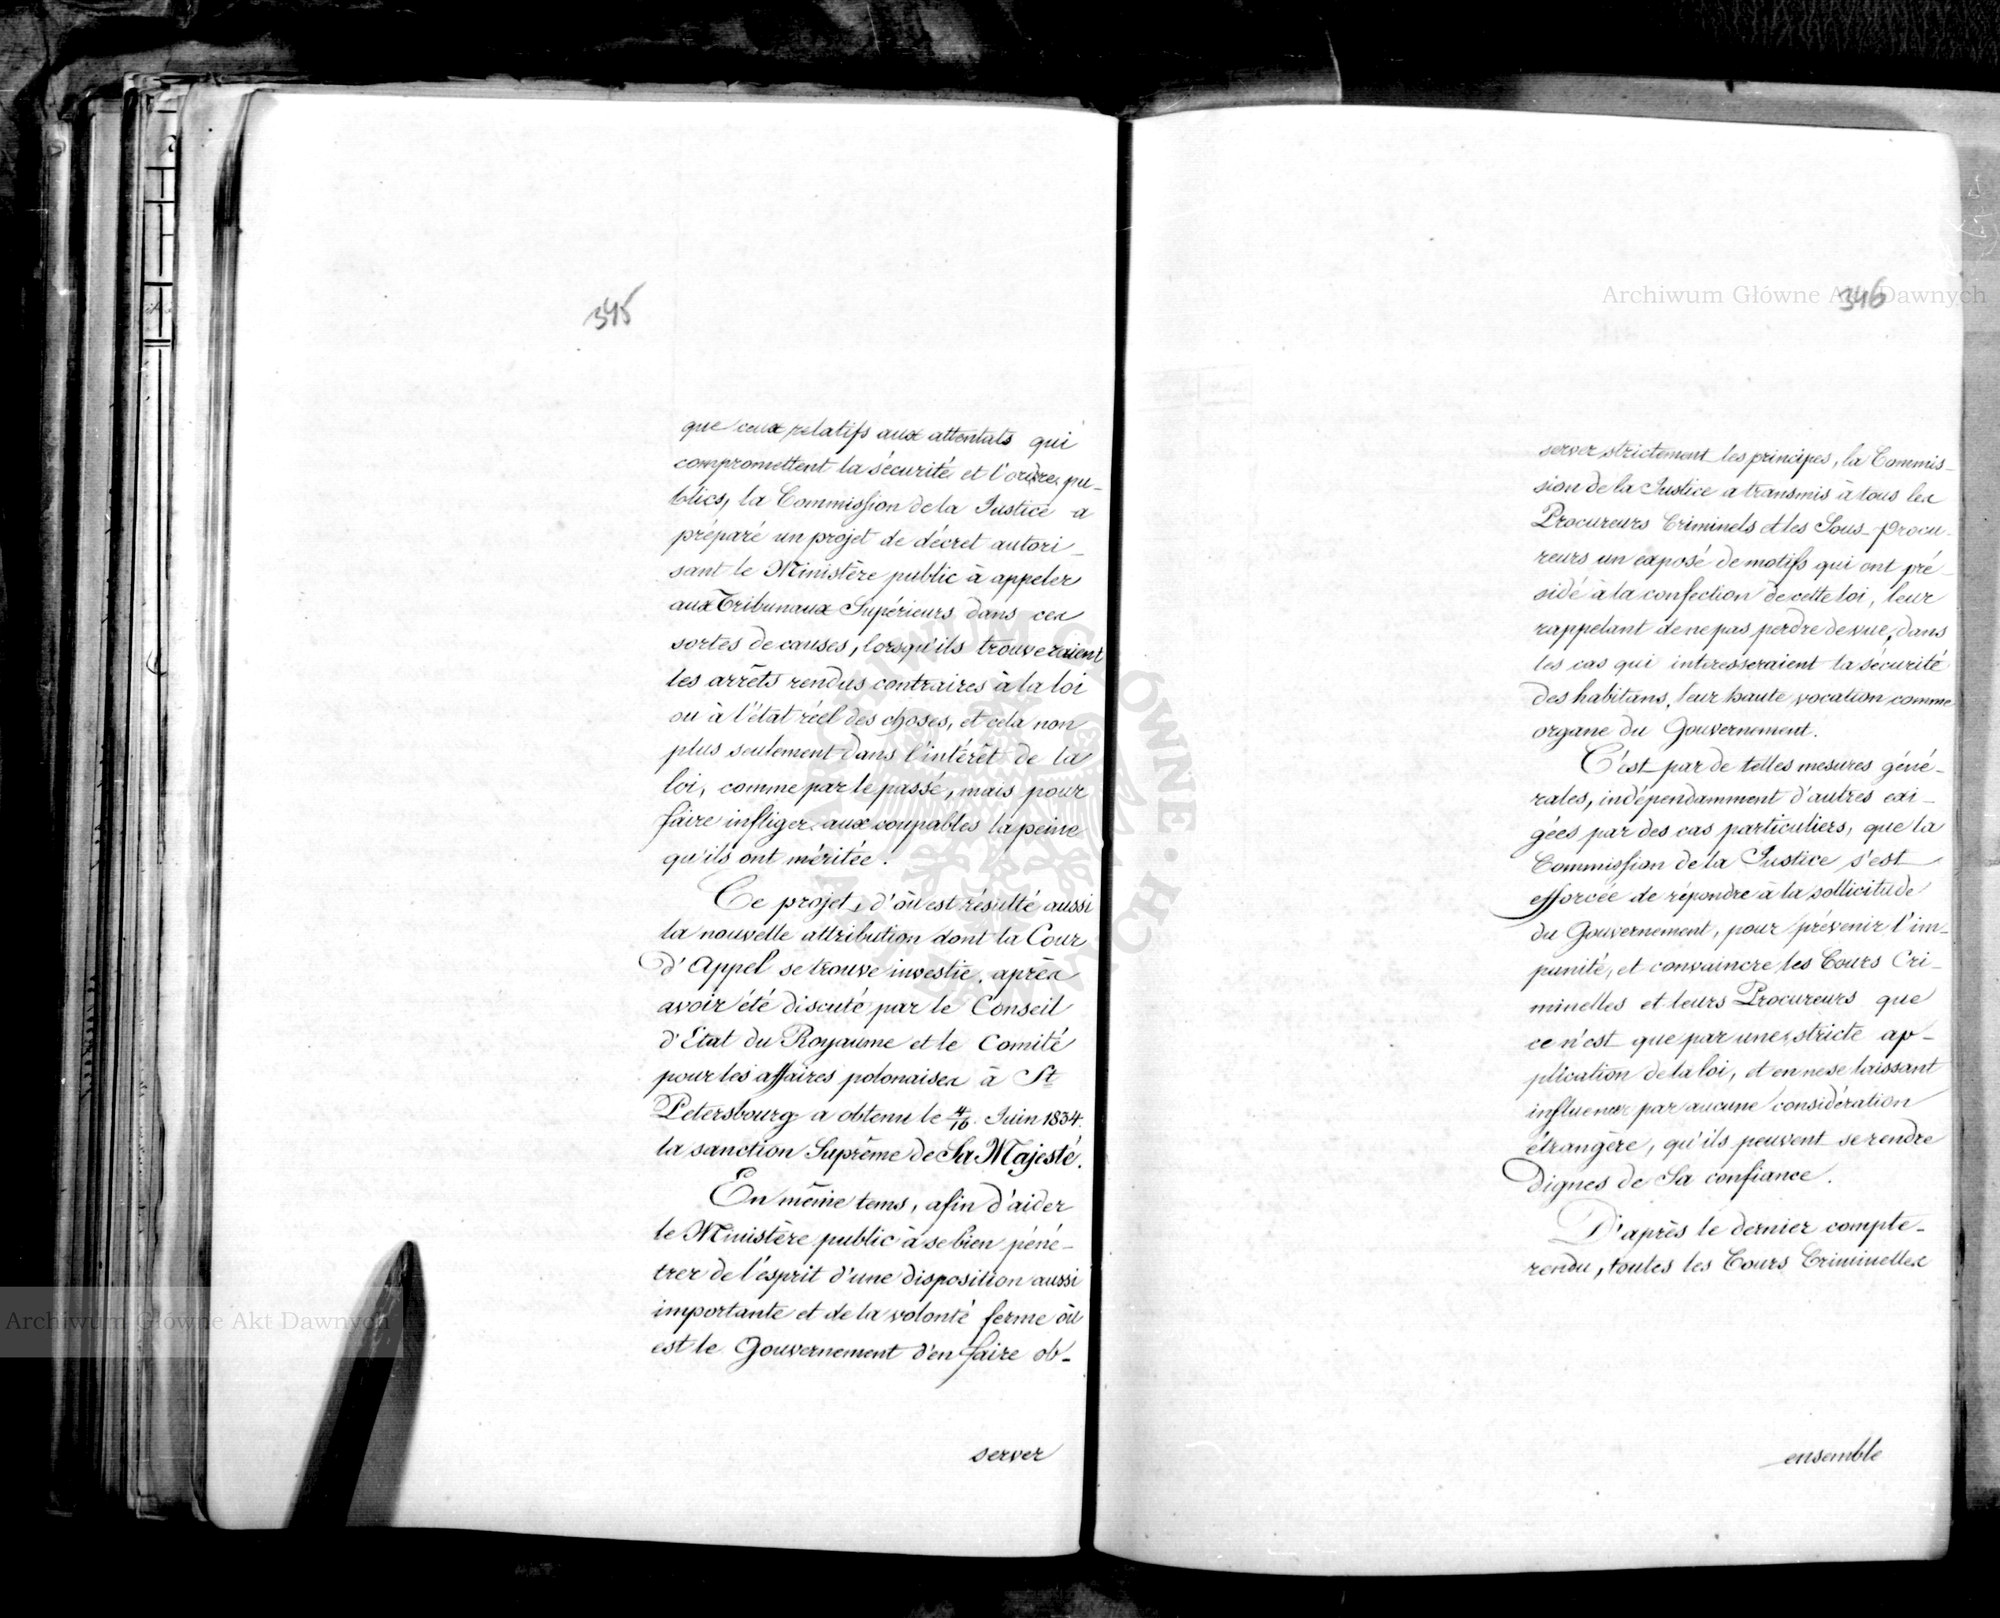 345
que ceux relatifs aux attentats qui
compromettent la sécurité et l'ordre pu-
blics, la Commission de la Justice a
préparé un projet de décret autori-
sant le Ministère public à appeler
aux Tribunaux Supérieurs dans ces
sortes de causes, lorsqu'ils trouveraient
les arrêts rendus contraires à la loi
ou à l'état réel des choses, et cela non
plus seulement dans l'intérêt de la
loi, comme par le passé, mais pour
faire infliger aux coupables la peine
qu'ils ont méritée.
Ce projet, d'où est résulté aussi
la nouvelle attribution dont la Cour
d'Appel se trouve investie, après
avoir été discuté par le Conseil
d'Etat du Royaume et le Comité
pour les affaires polonaises à St
Petersbourg a obtenu le 4/16 Juin 1834.
la sanction Suprême de Sa Majesté.
En même tems, afin d'aider
le Ministère public à se bien péné-
trer de l'esprit d'une disposition aussi
importante et de la volonté ferme où
est le Gouvernement d'en faire ob-
server
346
server strictement les principes, la Commis-
sion de la Justice a transmis à tous les
Procureurs Criminels et les Sous-Procu-
reurs un exposé de motifs qui ont pré-
sidé à la confection de cette loi, leur
rappelant de ne pas perdre de vue, dans
les cas qui intéresseraient la sécurité
des habitans, leur haute vocation comme
organe du Gouvernement.
C'est par de telles mesures géné-
rales, indépendamment d'autres exi-
gées par des cas particuliers, que la
Commission de la Justice s'est
efforcée de répondre à la sollicitude
du Gouvernement, pour prévenir l'im-
punité, et convaincre les Cours Cri-
minelles et leurs Procureurs que
ce n'est que par une stricte ap-
plication de la loi, et en ne se laissant
influencer par aucune considération
étrangère, qu'ils peuvent se rendre
dignes de Sa confiance.
D'après le dernier compte-
rendu, toutes les Cours Criminelles
ensemble
Archiwum Główne Akt Dawnych
Archiwum Główne Akt Dawnych